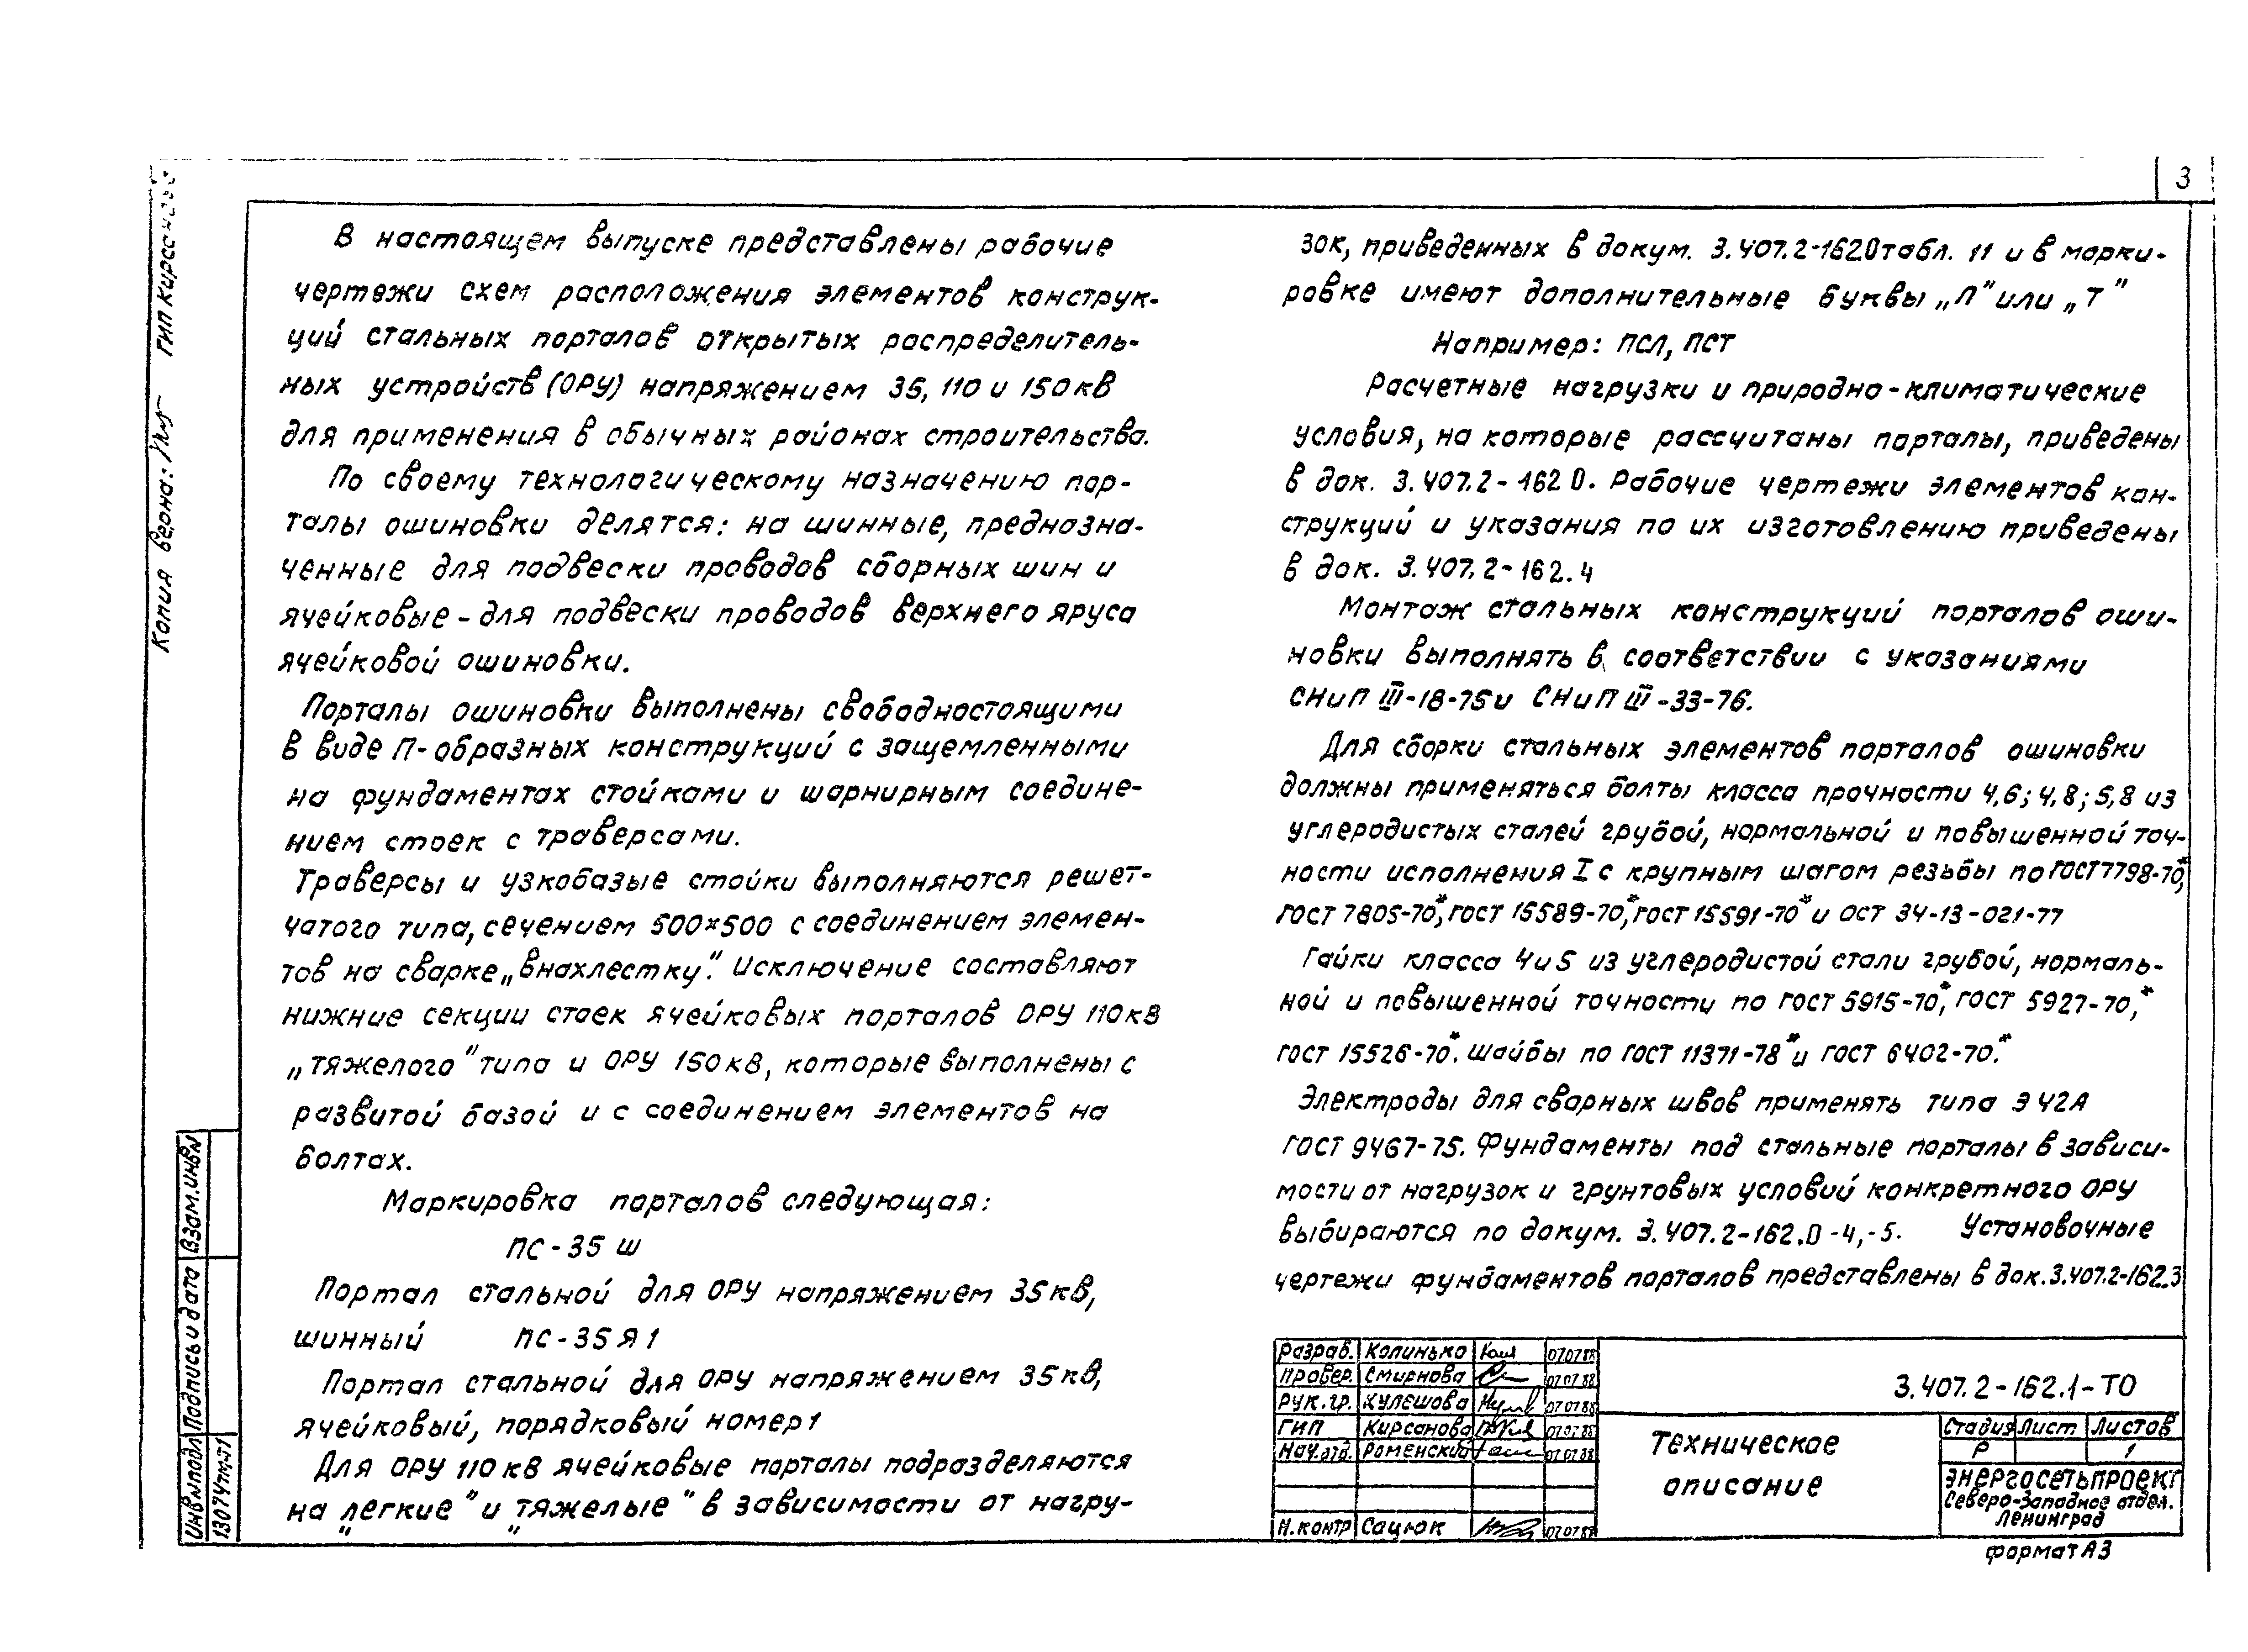 3
В настоящем выпуске представлены рабочие
чертежи схем расположения элементов конструк-
ций стальных порталов открытых распределитель-
ных устройств (ОРУ) напряжением 35, 110 и 150кВ
для применения в обычных районах строительства.
По своему технологическому назначению пор-
талы ошиновки делятся: на шинные, предназна-
ченные для подвески проводов сборных шин и
ячейковые - для подвески проводов верхнего яруса
ячейковой ошиновки.
Порталы ошиновки выполнены свободностоящими
в виде П-образных конструкций с защемленными
на фундаментах стойками и шарнирным соедине-
нием стоек с траверсами.
Траверсы и узкобазые стойки выполняются решет-
чатого типа, сечением 500×500 с соединением элемен-
тов на сварке „внахлестку". Исключение составляют
нижние секции стоек ячейковых порталов ОРУ 110кВ
„тяжелого" типа и ОРУ 150кВ, которые выполнены с
развитой базой и с соединением элементов на
болтах.
Маркировка порталов следующая:
ПС-35 Ш
Портал стальной для ОРУ напряжением 35кВ,
шинный ПС-35Я1
Портал стальной для ОРУ напряжением 35кВ,
ячейковый, порядковый номер 1
Для ОРУ 110кВ ячейковые порталы подразделяются
на „легкие" и „тяжелые" в зависимости от нагру-
зок, приведенных в докум. 3.407.2-162.0 табл. 11 и в марки-
ровке имеют дополнительные буквы „Л" или „Т"
Например: ПСЛ, ПСТ
Расчетные нагрузки и природно-климатические
условия, на которые рассчитаны порталы, приведены
в док. 3.407.2-162.0. Рабочие чертежи элементов кон-
струкций и указания по их изготовлению приведены
в док. 3.407.2-162.4
Монтаж стальных конструкций порталов оши-
новки выполнять в соответствии с указаниями
СНиП III-18-75 и СНиП III-33-76.
Для сборки стальных элементов порталов ошиновки
должны применяться болты класса прочности 4,6; 4,8; 5,8 из
углеродистых сталей грубой, нормальной и повышенной точ-
ности исполнения I с крупным шагом резьбы по ГОСТ 7798-70*,
ГОСТ 7805-70*, ГОСТ 15589-70*, ГОСТ 15591-70* и ОСТ 34-13-021-77
Гайки класса 4 и 5 из углеродистой стали грубой, нормаль-
ной и повышенной точности по ГОСТ 5915-70*, ГОСТ 5927-70*,
ГОСТ 15526-70*. Шайбы по ГОСТ 11371-78* и ГОСТ 6402-70*.
Электроды для сварных швов применять типа Э42А
ГОСТ 9467-75. Фундаменты под стальные порталы в зависи-
мости от нагрузок и грунтовых условий конкретного ОРУ
выбираются по докум. 3.407.2-162.0-4,-5. Установочные
чертежи фундаментов порталов представлены в док. 3.407.2-162.3
Разраб. Колинько 07.07.88
Провер. Смирнова 07.07.88
Рук. гр. Кулешова 07.07.88
ГИП Кирсанова 07.07.88
Нач. отд. Роменский 07.07.88
Н. контр Сацюк 07.07.88
3.407.2-162.1-ТО
Техническое
описание
Стадия Лист Листов
Р 1
ЭНЕРГОСЕТЬПРОЕКТ
Северо-Западное отдел.
Ленинград
формат А3
Копия верна: ГИП Кирсанова
Инв№подл Подпись и дата Взам.инв№
13074тм-т1